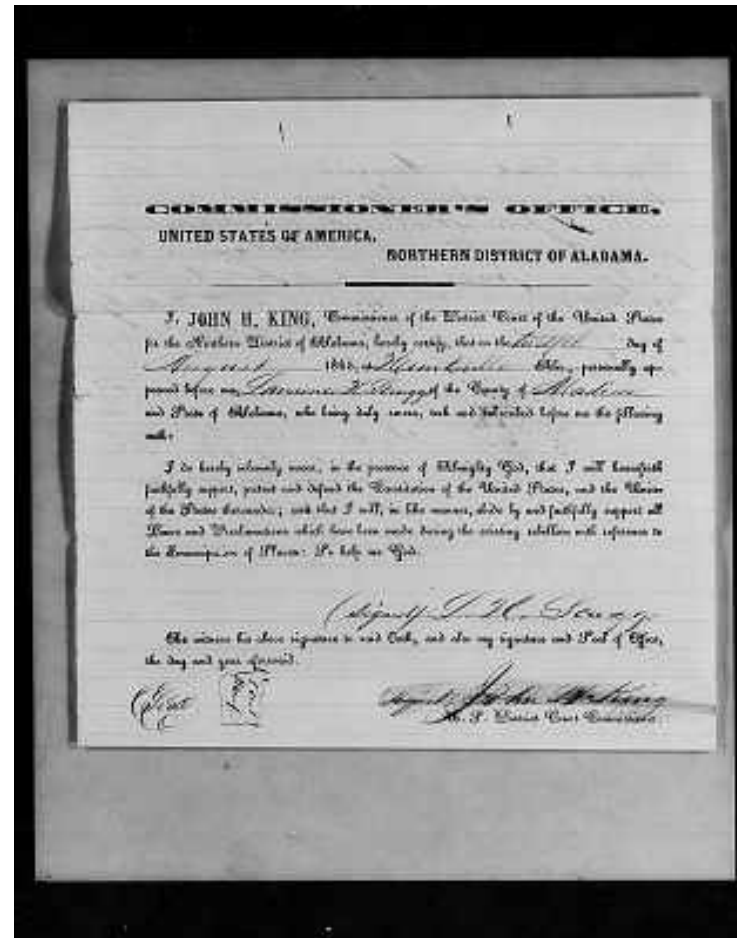 COMMISSIONER'S OFFICE,
UNITED STATES OF AMERICA,
NORTHERN DISTRICT OF ALABAMA.
I, JOHN H. KING, Commissioner of the District Court of the United States
for the Northern District of Alabama, hereby certify, that on the day of
August 1865, at Huntsville Ala., personally ap-
peared before me, of the County of Madison
and State of Alabama, who being duly sworn, took and subscribed before me the following
oath:
I do hereby solemnly swear, in the presence of Almighty God, that I will henceforth
faithfully support, protect and defend the Constitution of the United States, and the Union
of the States thereunder; and that I will, in like manner, abide by and faithfully support all
Laws and Proclamations which have been made during the existing rebellion with reference to
the Emancipation of Slaves: So help me God.
(Signed)
As witness his above signature to said Oath, and also my signature and Seal of Office,
the day and year aforesaid.
Seal
Signed John H. King
U. S. District Court Commissioner.